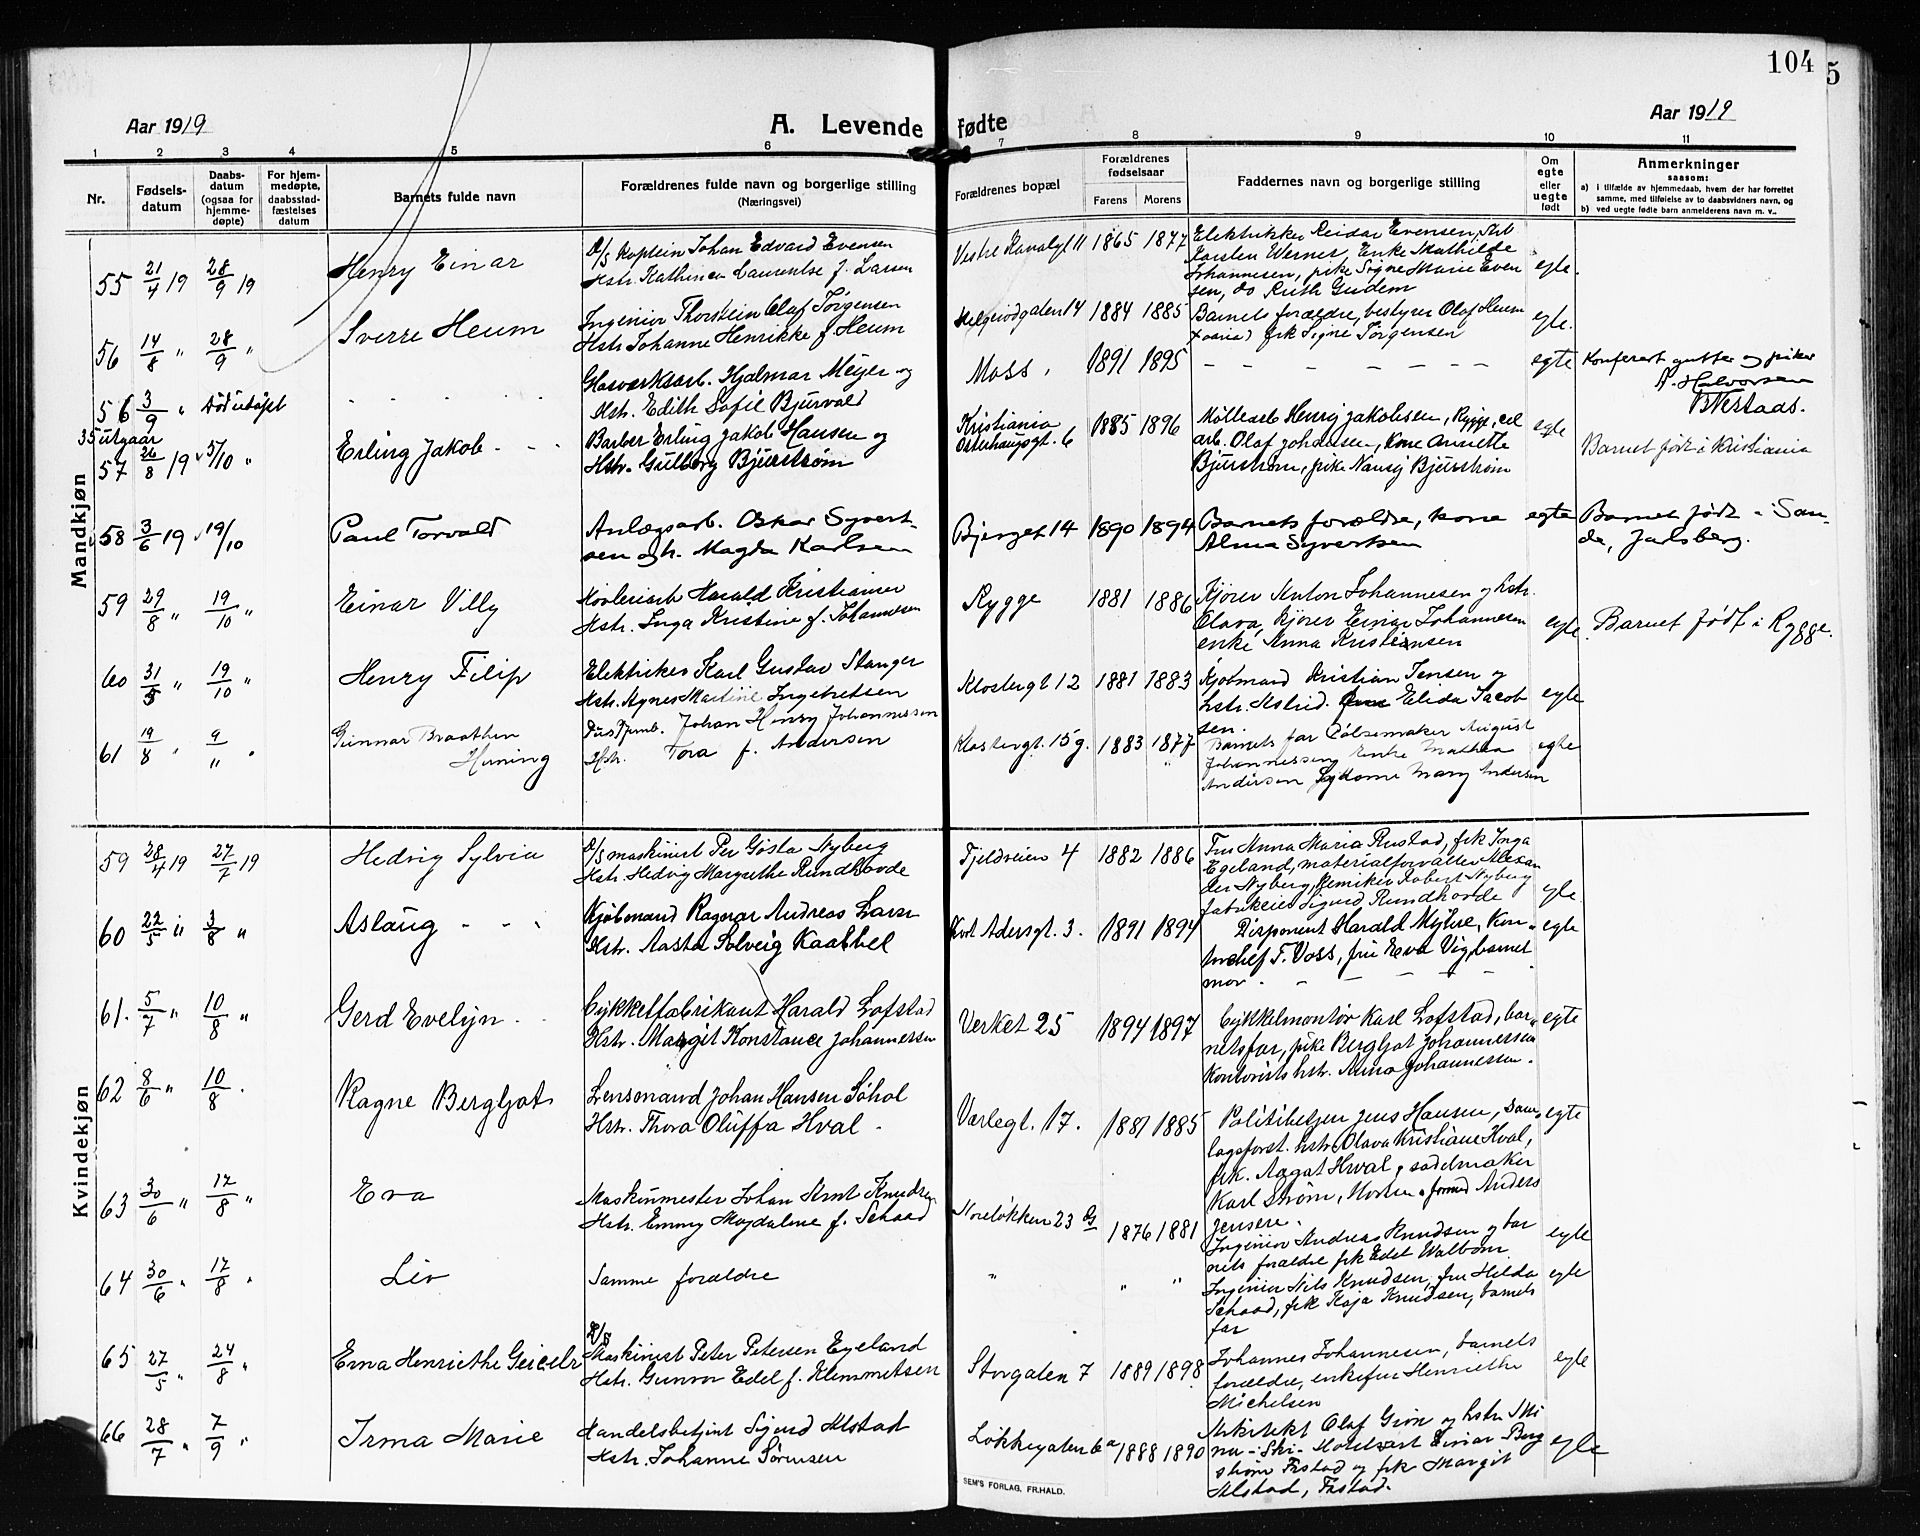 104
5
Aar 1919
A. Levende fødte
Aar 1919
1 2 3 4 5 6 7 8 9 10 11
Nr.
Fødsels-
datum
Daabs-
datum
(ogsaa for
hjemme-
døpte)
For hjem-
medøpte,
daabsstad-
fæstelses
datum
Barnets fulde navn
Forældrenes fulde navn og borgerlige stilling
(Næringsvei)
Forældrenes bopæl
Forældrenes
fødselsaar
Farens Morens
Faddernes navn og borgerlige stilling
Om
egte
eller
uegte
født
Anmerkninger
saasom:
a) i tilfælde av hjemmedaab, hvem der har forrettet
samme, med tilføielse av to daabsvidners navn, og
b) ved uegte fødte barn anmelderens navn m. v..
Mandkjøn
55 21/4 19 28/9 19 Henry Einar
D/S Kaptein Johan Edvard Evensen
Hstr. Kathinca Laurentse f. Larsen
Vestre Kanalgt 11 1865 1877
Elektrikker Reidar Evensen, Arb
Karsten Werner, Enke Mathilde
Johannesen, pike Signe Marie Even
sen, do Ruth Gudem
egte.
56 14/8 " 28/9 " Sverre Heum
Ingeniør Thorstein Olaf Jørgensen
Hstr. Johanne Henrikke f. Heum
Helgerødgaten 14 1884 1885
Barnets forældre, bestyrer Olaf Heum
frk Signe Jørgensen
egte.
56 3/9 " Død udøpt
Glasverksarb. Hjalmar Meyer og
Hstr. Edith Sofie Bjurvald
Moss, 1891 1895 — — — — — — egte
Konferert gutter og piker
A. Halvorsen
35 utgaar
57 26/8 19 5/10 " Erling Jakob - -
Barber Erling Jakob Hansen og
Hstr. Gulborg Bjurstrøm
Kristiania
Osterhausgt. 6 1885 1896
Møllearb Henrij Jakobsen, Rygge,
arb. Olaf Johansen, kone Annette
Bjurstrøm, pike Nansij Bjurstrøm
egte
Barnet født i Kristiania
58 3/6 19 19/10 Paul Torvald
Anlægsarb. Oskar Syvert-
sen og h. Magda Karlsen
Bjerget 14 1890 1894
Barnets forældre, kone
Alma Syvertsen
egte
Barnet født i San-
de, Jarlsberg.
59 29/8 " 19/10 " Einar Villy
Harald Kristianser
Hstr. Inga Kristine f. Johannesen
Rygge 1881 1886
Kjører Anton Johannesen og hstr.
Olava, Kjører Einar Johannesen
enke Anna Kristiansen
egte.
Barnet født i Rygge.
60 31/5 " 19/10 " Henry Filip
Elektriker Karl Gustav Stanger
Hstr. Agnes Martine Ingebretsen
Klostergt 12 1881 1883
Kjøbmand Kristian Jensen og
hstr. Astrid. Elida Jacob
sen.
egte
61 19/8 " 9/" " Gunnar Braathen
Henning
Johan Henry Johannessen
Hstr. Tora f. Andersen
Klostergt. 15 g. 1883 1877
Barnets far Pølsemaker August
Johannessen Enke Mathea
Andersen Sydame Mary Andersen
egte
Kvindekjøn
59 28/4 19 27/7 19 Hedvig Sylvia
D/S maskinist Per Gösta Nyberg
Hstr. Hedvig Margrethe Rundhovde
Fjeldveien 4 1882 1886
Fru Anna Maria Rustad, frk Inga
Egeland, materialforvalter Alexan
der Nyberg, Kemiker Robert Nyberg
fabrikeier Sigurd Rundhovde
egte.
60 22/5 " 3/8 " Aslaug - - -
Kjøbmand Ragnar Andreas Larsen
Hstr. Aasta Solveig Kaabbel
Kort Adersgt. 3. 1891 1894
Disponent Harald Myhre, Kon-
torchef T. Voss, fru Eva Vig, barnet
mor. — — — —
egte
61. 5/7 " 10/8 " Gerd Evelyn - -
Cykkelfabrikant Harald Lofstad
Hstr. Margit Konstance Johannessen
Verket 25 1894 1897
Cykkelmontør Karl Lofstad, bar-
netsfar, pike Bergljot Johannessen
Kontorists hstr. Anna Johannessen.
egte
62 8/6 " 10/8 " Ragne Bergljot
Lensmand Johan Hansen Søhol
Hstr. Thora Oluffa Hval -
Værlegt. 17. 1881 1885
Politibetjen Jens Hansen, Dam-
lagsforst. hstr. Olava Kristiane Hval,
frk. Aagot Hval, sadelmaker
Karl Strøm, Horten, formd Anders
Jensen.
egte
63 30/6 " 17/8 " Eva
Maskinmester Johan Arnt Knudsen
Hstr. Emmy Magdalene f. Schaad
Noreløkken 23 B 1876 1881
Ingeniør Andreas Knudsen og bar
nets forældre frk Edel Walbom
egte
64 30/6 " 17/8 " Liv
Samme forældre
" " "
Ingeniør Nils Knudsen, fru Hilda
Schaad, frk Kaja Knudsen, barnets
far
egte
65 27/5 " 24/8 " Erna Henriethe
D/S
Maskinist Peter Petersen Egeland
Hstr. Gunvor Edel f. Klemmetsen
Storgaten 7 1889 1898
Johannes Johannesen, barnets
forældre, enkefru Henriethe
Michelsen
egte
66 28/7 " 7/9 " Irma Marie
Handelsbetjent Sigurd Alstad
Hstr. Johanne Sørensen
Løkkegaten 6a 1888 1890
Arkitekt Olaf Grøn og hstr. Mi
na - Ski - Hotelvært Einar Berg
strøm Fastad og frk Margit
Alstad, Fastad.
egte
SEM'S FORLAG, FR.HALD.